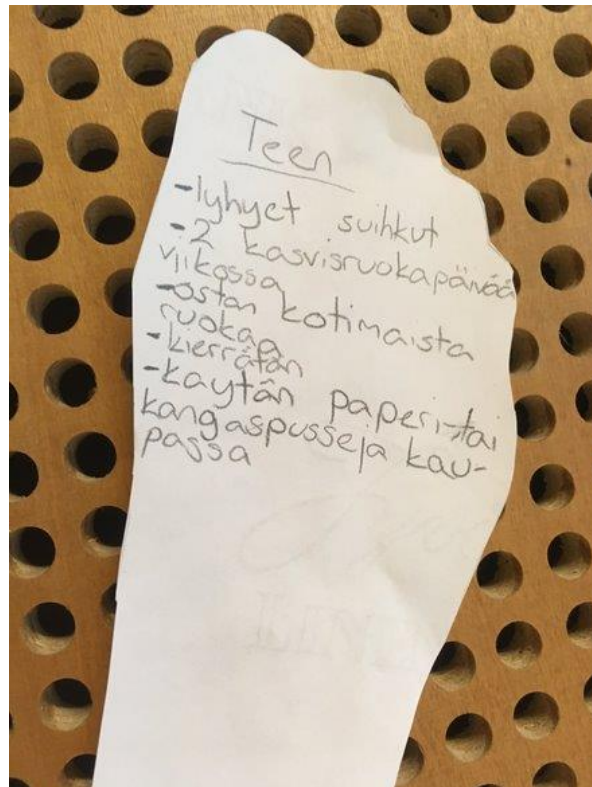 Teen
-lyhyet suihkut
-2 kasvisruokapäivää
viikossa
-ostan kotimaista
ruokaa
-kierrätän
-käytän paperi-tai
kangaspusseja kau-
passa